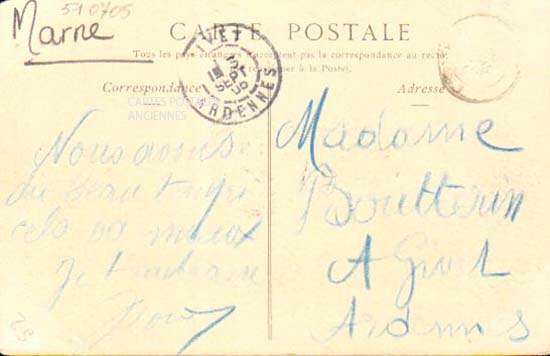 510705
Marne
CARTE POSTALE
Tous les pays étrangers n'acceptent pas la correspondance au recto
à la Poste).
Correspondance
Adresse
GIVET
SEPT
ARDENNES
CARTES POSTALES
ANCIENNES
Nous avons
du beau temps
cela va mieux
Je t'embrasse
Madame
Boutterin
A Givet
Ardennes